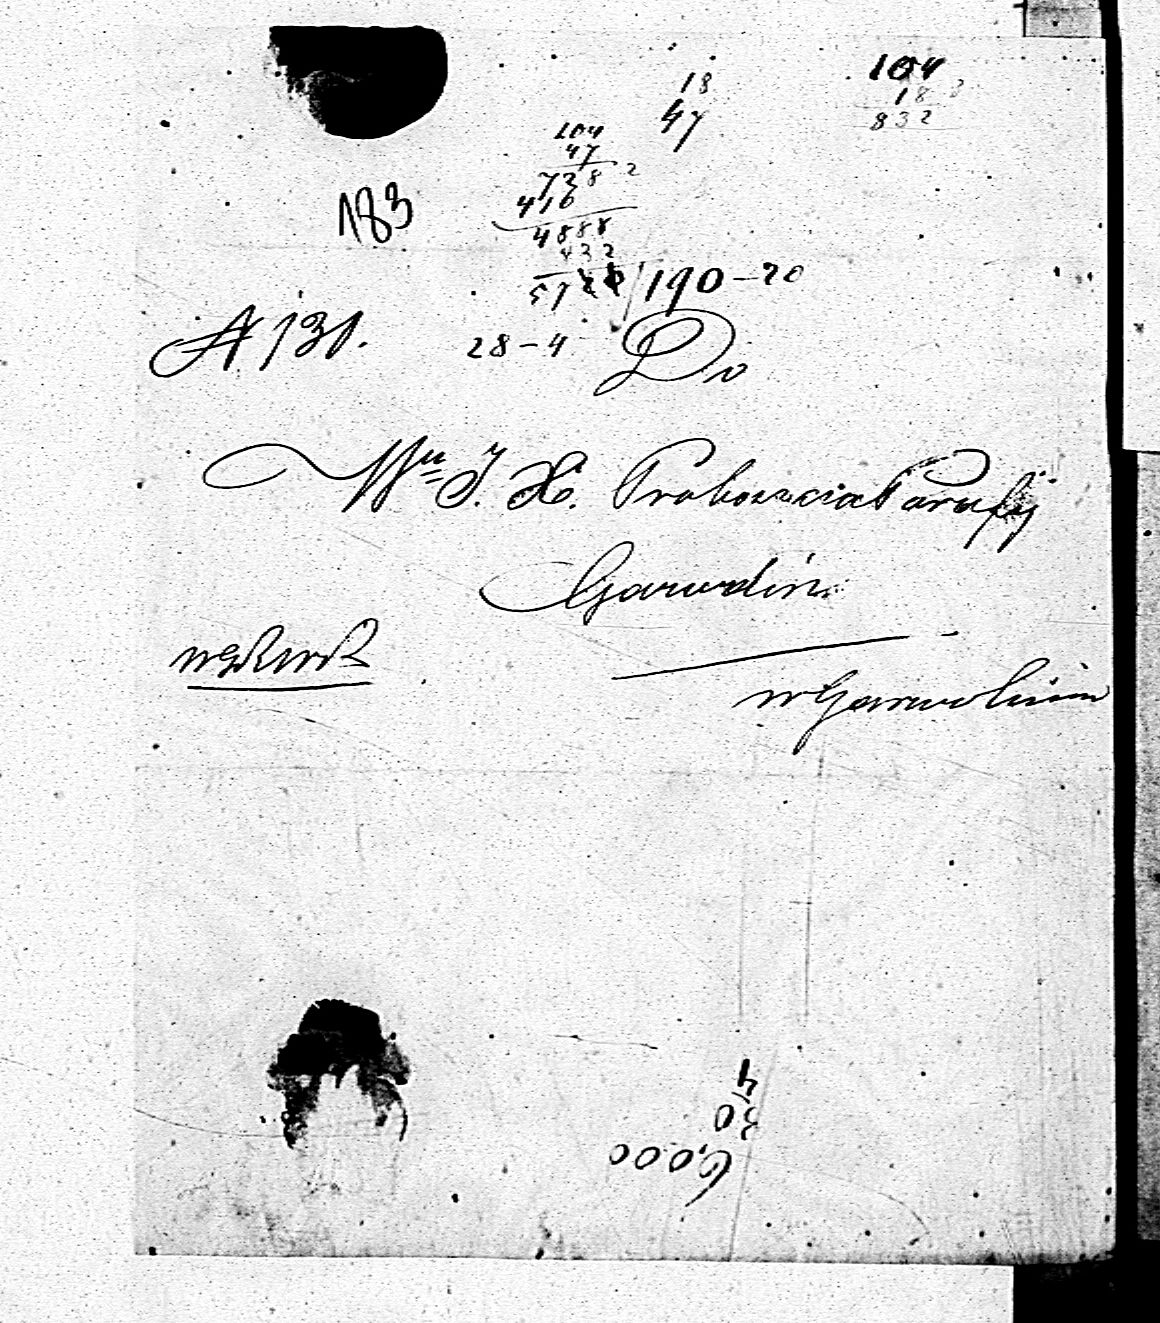 18
47
104
18
832
104
47
728 2
416
4888
832
183
190-20
№ 131.
28-4
Do
Wu J. X. Proboszcza Parafij
Garwolin
w Garwolinie
4
30
6,000